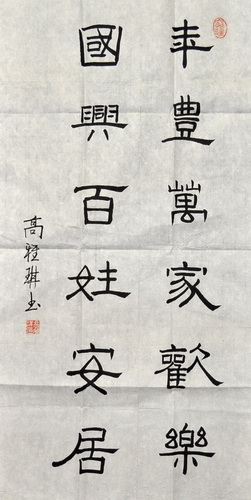 年豐萬家歡樂
國興百姓安居
高雅琪书